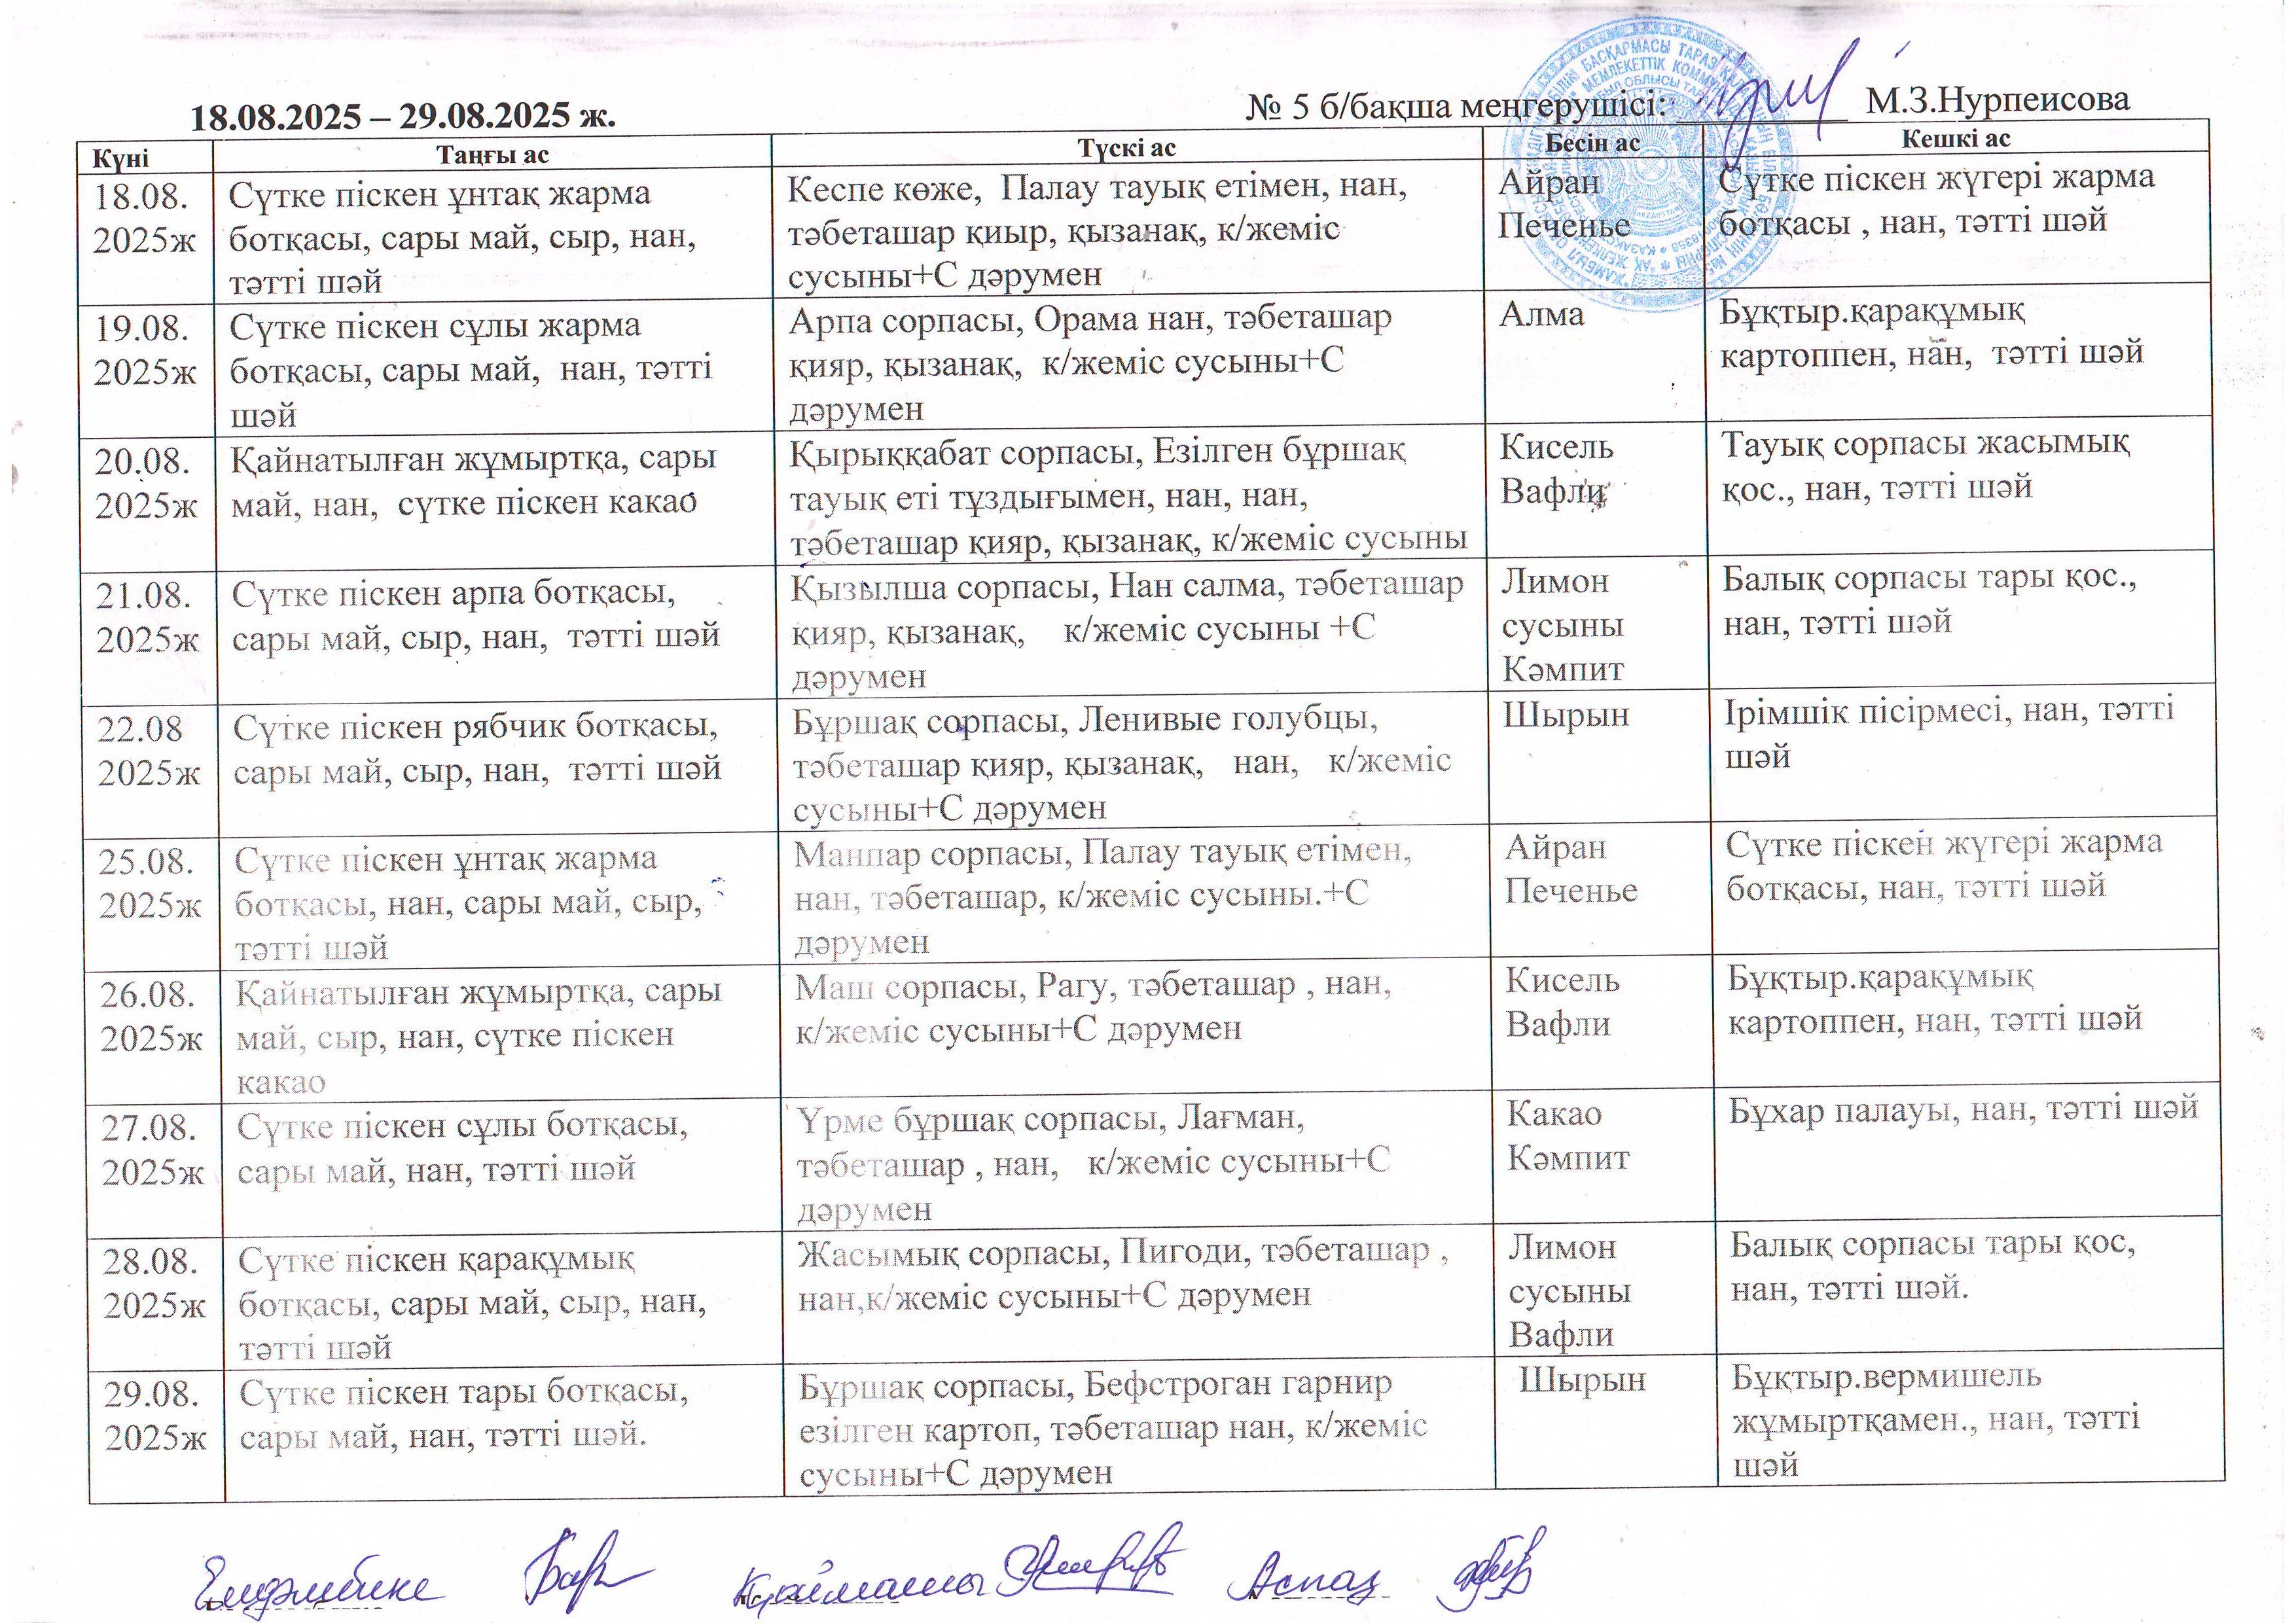 18.08.2025 – 29.08.2025 ж.
№ 5 б/бақша меңгерушісі: М.З.Нурпеисова
Күні Таңғы ас Түскі ас Бесін ас Кешкі ас
18.08.
2025ж
Сүтке піскен ұнтақ жарма
ботқасы, сары май, сыр, нан,
тәтті шәй
Кеспе көже, Палау тауық етімен, нан,
тәбеташар қиыр, қызанақ, к/жеміс
сусыны+С дәрумен
Айран
Печенье
Сүтке піскен жүгері жарма
ботқасы , нан, тәтті шәй
19.08.
2025ж
Сүтке піскен сұлы жарма
ботқасы, сары май, нан, тәтті
шәй
Арпа сорпасы, Орама нан, тәбеташар
қияр, қызанақ, к/жеміс сусыны+С
дәрумен
Алма
Бұқтыр.қарақұмық
картоппен, нан, тәтті шәй
20.08.
2025ж
Қайнатылған жұмыртқа, сары
май, нан, сүтке піскен какао
Қырыққабат сорпасы, Езілген бұршақ
тауық еті тұздығымен, нан, нан,
тәбеташар қияр, қызанақ, к/жеміс сусыны
Кисель
Вафли
Тауық сорпасы жасымық
қос., нан, тәтті шәй
21.08.
2025ж
Сүтке піскен арпа ботқасы,
сары май, сыр, нан, тәтті шәй
Қызылша сорпасы, Нан салма, тәбеташар
қияр, қызанақ, к/жеміс сусыны +С
дәрумен
Лимон
сусыны
Кәмпит
Балық сорпасы тары қос.,
нан, тәтті шәй
22.08
2025ж
Сүтке піскен рябчик ботқасы,
сары май, сыр, нан, тәтті шәй
Бұршақ сорпасы, Ленивые голубцы,
тәбеташар қияр, қызанақ, нан, к/жеміс
сусыны+С дәрумен
Шырын
Ірімшік пісірмесі, нан, тәтті
шәй
25.08.
2025ж
Сүтке піскен ұнтақ жарма
ботқасы, нан, сары май, сыр,
тәтті шәй
Манпар сорпасы, Палау тауық етімен,
нан, тәбеташар, к/жеміс сусыны.+С
дәрумен
Айран
Печенье
Сүтке піскен жүгері жарма
ботқасы, нан, тәтті шәй
26.08.
2025ж
Қайнатылған жұмыртқа, сары
май, сыр, нан, сүтке піскен
какао
Маш сорпасы, Рагу, тәбеташар , нан,
к/жеміс сусыны+С дәрумен
Кисель
Вафли
Бұқтыр.қарақұмық
картоппен, нан, тәтті шәй
27.08.
2025ж
Сүтке піскен сұлы ботқасы,
сары май, нан, тәтті шәй
Үрме бұршақ сорпасы, Лағман,
тәбеташар , нан, к/жеміс сусыны+С
дәрумен
Какао
Кәмпит
Бұхар палауы, нан, тәтті шәй
28.08.
2025ж
Сүтке піскен қарақұмық
ботқасы, сары май, сыр, нан,
тәтті шәй
Жасымық сорпасы, Пигоди, тәбеташар ,
нан,к/жеміс сусыны+С дәрумен
Лимон
сусыны
Вафли
Балық сорпасы тары қос,
нан, тәтті шәй.
29.08.
2025ж
Сүтке піскен тары ботқасы,
сары май, нан, тәтті шәй.
Бұршақ сорпасы, Бефстроган гарнир
езілген картоп, тәбеташар нан, к/жеміс
сусыны+С дәрумен
Шырын
Бұқтыр.вермишель
жұмыртқамен., нан, тәтті
шәй
Емдәмбике Қоймашы Аспаз